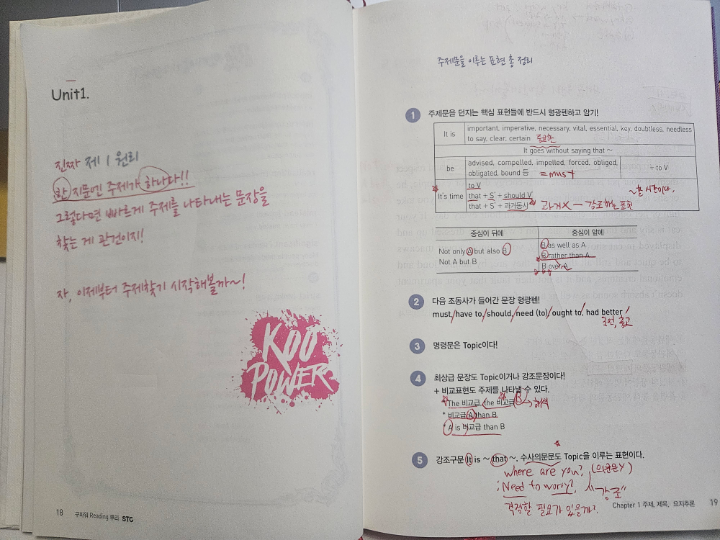 Unit1.
진짜 제 1 원리
한 지문엔 주제가 하나다!!
그렇다면 빠르게 주제를 나타내는 문장을
찾는 게 관건이지!
자, 이제부터 주제찾기 시작해볼까~!
KOO
POWER
18 구파워 Reading 뿌리 STC
주제문을 이루는 표현 총 정리
1 주제문을 던지는 핵심 표현들에 반드시 형광펜하고 암기!
It is important, imperative, necessary, vital, essential, key, doubtless, needless
to say, clear, certain
It goes without saying that ~
be advised, compelled, impelled, forced, obliged, + to V
obligated, bound 등 = must
It's time to V
that + S + should V
that + S + 과거동사 과거X – 강조하는 표현
~할 시간이다.
중심이 뒤에 중심이 앞에
Not only A but also B B as well as A
Not A but B B rather than A
B
2 다음 조동사가 들어간 문장 형광펜!
must/have to/should/need (to)/ought to/had better
3 명령문은 Topic이다!
4 최상급 문장도 Topic이거나 강조문장이다!
+ 비교표현도 주제를 나타낼 수 있다.
* The 비교급, the 비교급 → 해석
* 비교급 A than B
* A is 비교급 than B
5 강조구문 It is ~ that ~, 수사의문문도 Topic을 이루는 표현이다.
Where are you? (의문문)
: Need to worry?
걱정할 필요가 있을까?
Chapter 1 주제, 제목, 요지추론 19